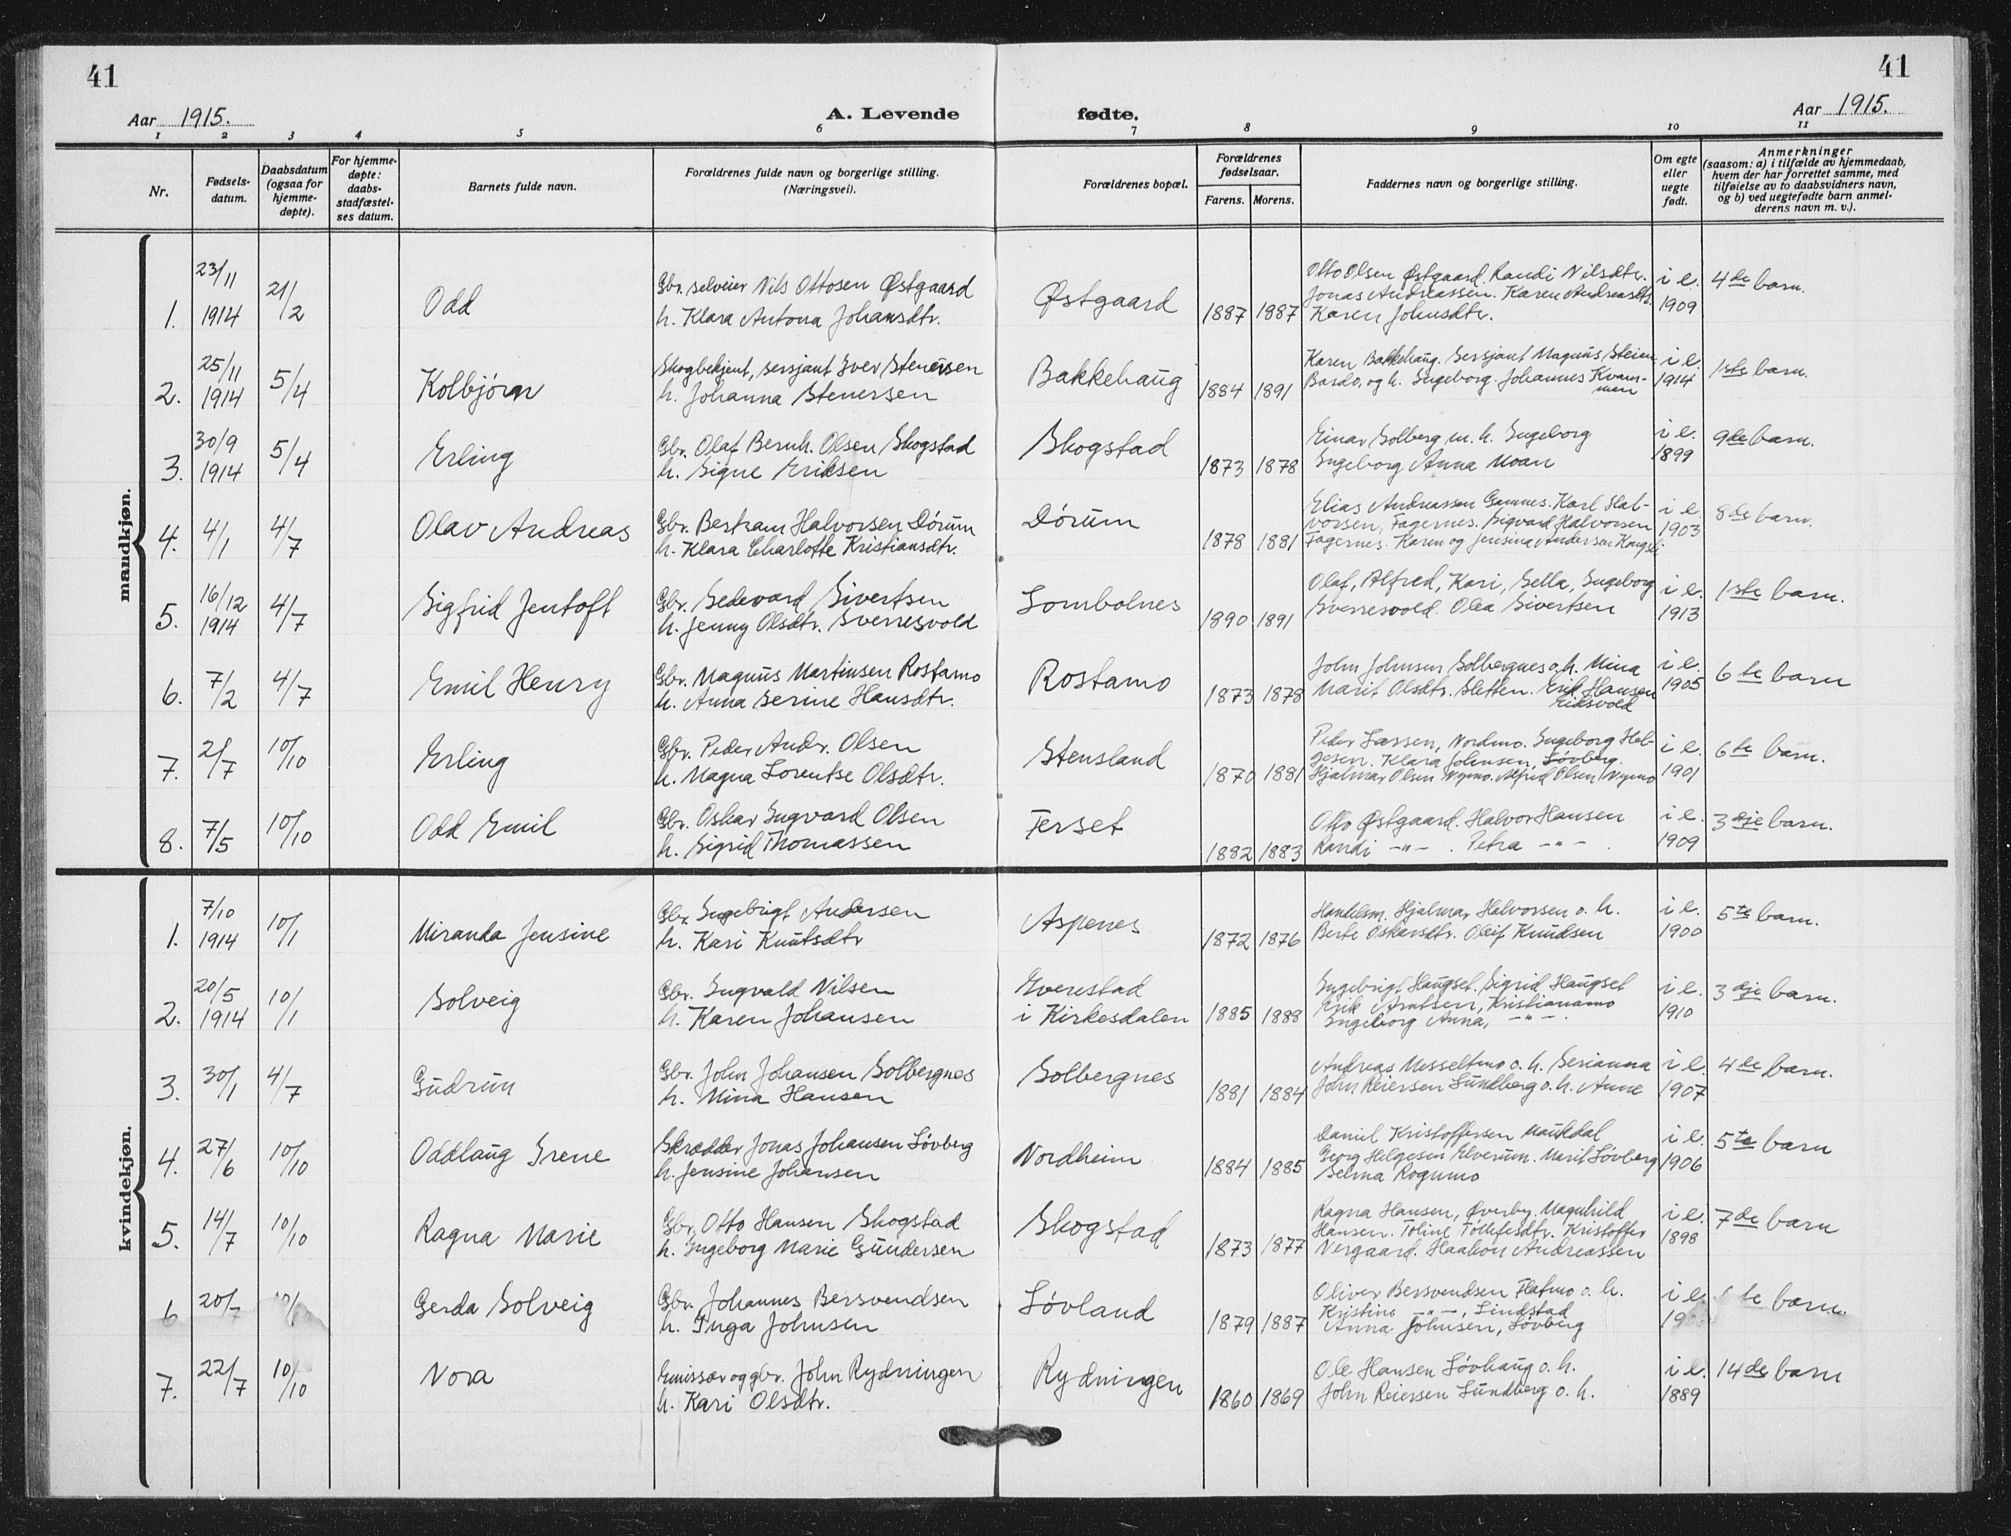 41
41
Aar 1915.
A. Levende fødte.
Aar 1915.
1 2 3 4 5 6 7 8 9 10 11
Nr.
Fødsels-
datum.
Daabsdatum
(ogsaa for
hjemme-
døpte).
For hjemme-
døpte:
daabs-
stadfæstel-
ses datum.
Barnets fulde navn.
Forældrenes fulde navn og borgerlige stilling.
(Næringsvei).
Forældrenes bopæl.
Forældrenes
fødselsaar.
Farens. Morens.
Faddernes navn og borgerlige stilling.
Om egte
eller
uegte
født.
Anmerkninger
(saasom: a) i tilfælde av hjemmedaab,
hvem der har forrettet samme, med
tilføielse av to daabsvidners navn,
og b) ved uegtefødte barn anmel-
derens navn m. v.).
mandkjøn.
1. 23/11 1914 21/2 Odd
Gbr. selveier Nils Ottosen Østgaard
h. Klara Antona Johansdtr.
Østgaard 1887 1887
Otto Olsen Østgaard. Randi Nilsdtr.
Jonas Andreassen. Karen Andreasdtr.
Karen Johnsdtr.
i e. 1909 4de barn.
2. 25/11 1914 5/4 Kolbjørn
Skogbetjent, sersjant Iver Stenersen
h. Johanna Stenersen
Bakkehaug 1884 1891
Karen Bakkehaug. Sersjant Magnus Steien
Bardo, og h. Ingeborg. Johannes Kvam-
men
i e. 1914 1ste barn.
3. 30/9 1914 5/4 Erling
Gbr. Olaf Bernh. Olsen Skogstad
h. Signe Eriksen
Skogstad 1873 1878
Einar Solberg m. h. Ingeborg
Ingeborg Anna Moan
i e. 1899 9de barn.
4. 4/1 4/7 Olav Andreas
Gbr. Bertram Halvorsen Dørum
h. Klara Charlotte Kristiansdtr.
Dørum 1878 1881
Elias Andreassen Gamnes. Karl Hal-
vorsen, Fagernes. Sigvard Halvorsen
Fagernes. Karen og Jensine Andersen Kongsli
i e. 1903 8de barn.
5. 16/12 1914 4/7 Sigfrid Jentoft
Gbr. Sedevard Sivertsen
h. Jenny Olsdtr. Sverresvold
Lombolnes 1890 1891
Olaf, Alfred, Kari, Sella, Ingeborg
Sverresvold. Olea Sivertsen
i e. 1913 1ste barn.
6. 7/2 4/7 Emil Henry
Gbr. Magnus Martinsen Rostamo
h. Anna Serine Hansdtr.
Rostamo 1873 1878
John Johnsen Solbergnes o. h. Mina
Marit Olsdtr. Sletten. Erik Hansen
Eidsvold
i e. 1905 6te barn
7. 2/7 10/10 Erling
Gbr. Peder Andr. Olsen
h. Magna Lorentse Olsdtr.
Stensland 1870 1881
Peder Lassen, Nordmo. Ingeborg Hel-
gesen. Klara Johnsen, Løvberg.
Hjalmar Olsen Nymo. Alfrid Olsen Nymo
i e. 1901 6te barn.
8. 7/5 10/10 Odd Emil
Gbr. Oskar Ingvard Olsen
h. Sigrid Thomassen
Ferset 1882 1883
Otto Østgaard. Halvor Hansen
Randi —"— . Petra —"— .
i e. 1909 3dje barn.
kvindekjøn.
1. 7/10 1914 10/1 Miranda Jensine
Gbr. Ingebrigt Andersen
h. Kari Knutsdtr
Aspenes 1872 1876
Handelsm. Hjalmar Halvorsen o. h.
Berte Oskarsdtr. Oleif Knudsen
i e. 1900 5te barn.
2. 20/5 1914 10/1 Solveig
Gbr. Ingvald Nilsen
h. Karen Johansen
Sverrestad
i Kirkesdalen 1885 1888
Ingebrigt Haugset. Sigrid Haugset
Erik Arntsen, Kristianamo
Ingeborg Anna, —"— .
i e. 1910 3dje barn.
3. 30/1 4/7 Gudrun
Gbr. John Johansen Solbergnes
h. Mina Hansen
Solbergnes 1881 1884
Andreas Messeltmo o. h. Serianna
John Reiersen Lundberg o. h. Anne
i e. 1907 4de barn.
4. 27/6 10/10 Oddlaug Irene
Skrædder Jonas Johansen Løvberg
h. Jensine Johansen
Nordheim 1884 1885
Daniel Kristoffersen Maukdal
Georg Helgesen Elverum. Marit Løvberg
Selma Rognmo
i e. 1906 5te barn
5. 14/7 10/10 Ragna Marie
Gbr. Otto Hansen Skogstad
h. Ingeborg Marie Gundersen
Skogstad 1873 1877
Ragna Hansen, Øverby. Magnhild
Hansen. Toline Tollefsdtr. Kristoffer
Nergaard. Haakon Andreassen
i e. 1898 7de barn
6 20/7 Gerda Solveig
Gbr. Johannes Bersvendsen
h. Inga Johnsen
Løvland 1879 1887
Oliver Bersvendsen Flatmo o. h.
Kristine —"—, Lindstad
Anna Johnsen, Løvberg
i e. te barn.
7. 22/7 10/10 Nora
Emissær og gbr. John Rydningen
h. Kari Olsdtr.
Rydningen 1860 1869
Ole Hansen Løvhaug o. h.
John Reiersen Lundberg o. h.
i e. 1889 14de barn